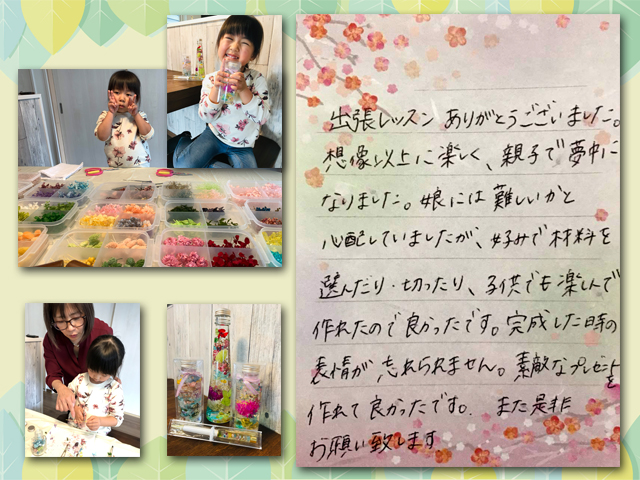 出張レッスン ありがとうございました。
想像以上に楽しく、親子で夢中に
なりました。娘には難しいかと
心配していましたが、好みで材料を
選んだり・切ったり、子供でも楽しんで
作れたので良かったです。完成した時の
表情が忘れられません。素敵なプレゼントを
作れて良かったです。 また是非
お願い致します